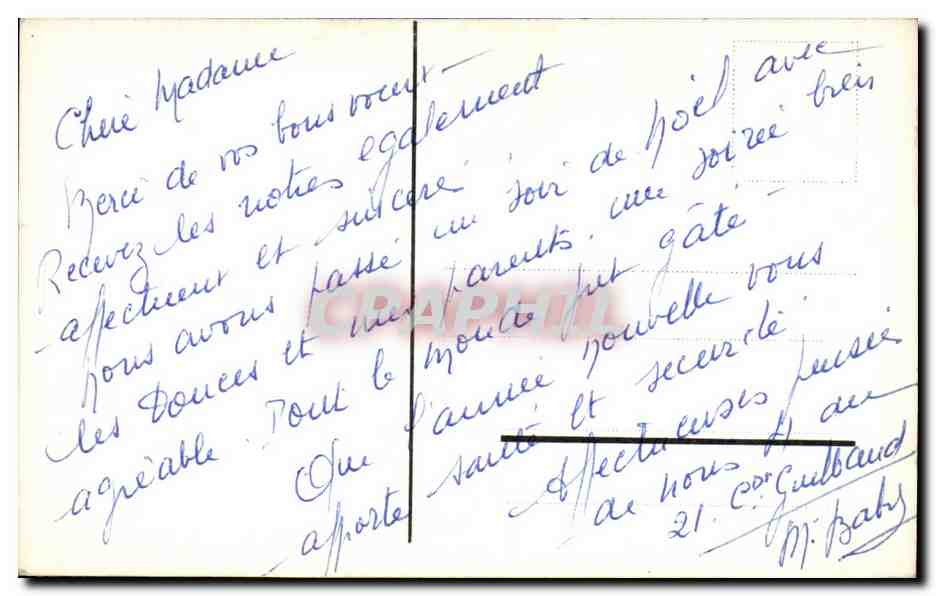 Chère Madame
Merci de vos bons voeux -
Recevez les notres egalement
affectueux et sincère
nous avons passé un soir de Noël avec
les Douces et mes parents. une soirée bien
agréable Tout le monde fut gâté -
Que l'année nouvelle vous
apporte santé et securité
Affectueuses pensées
de nous 4 au
21. Cdt. Guilbaud
M. Baby
CPAPHIL